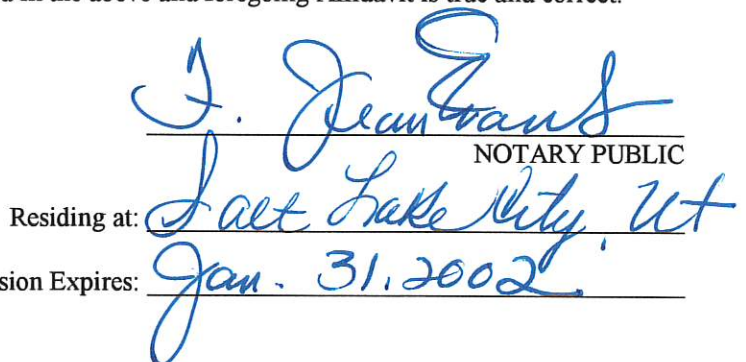 in the above and foregoing Affidavit is true and correct.
J. Jean Evans
NOTARY PUBLIC
Residing at: Salt Lake City, Ut
sion Expires: Jan. 31, 2002.